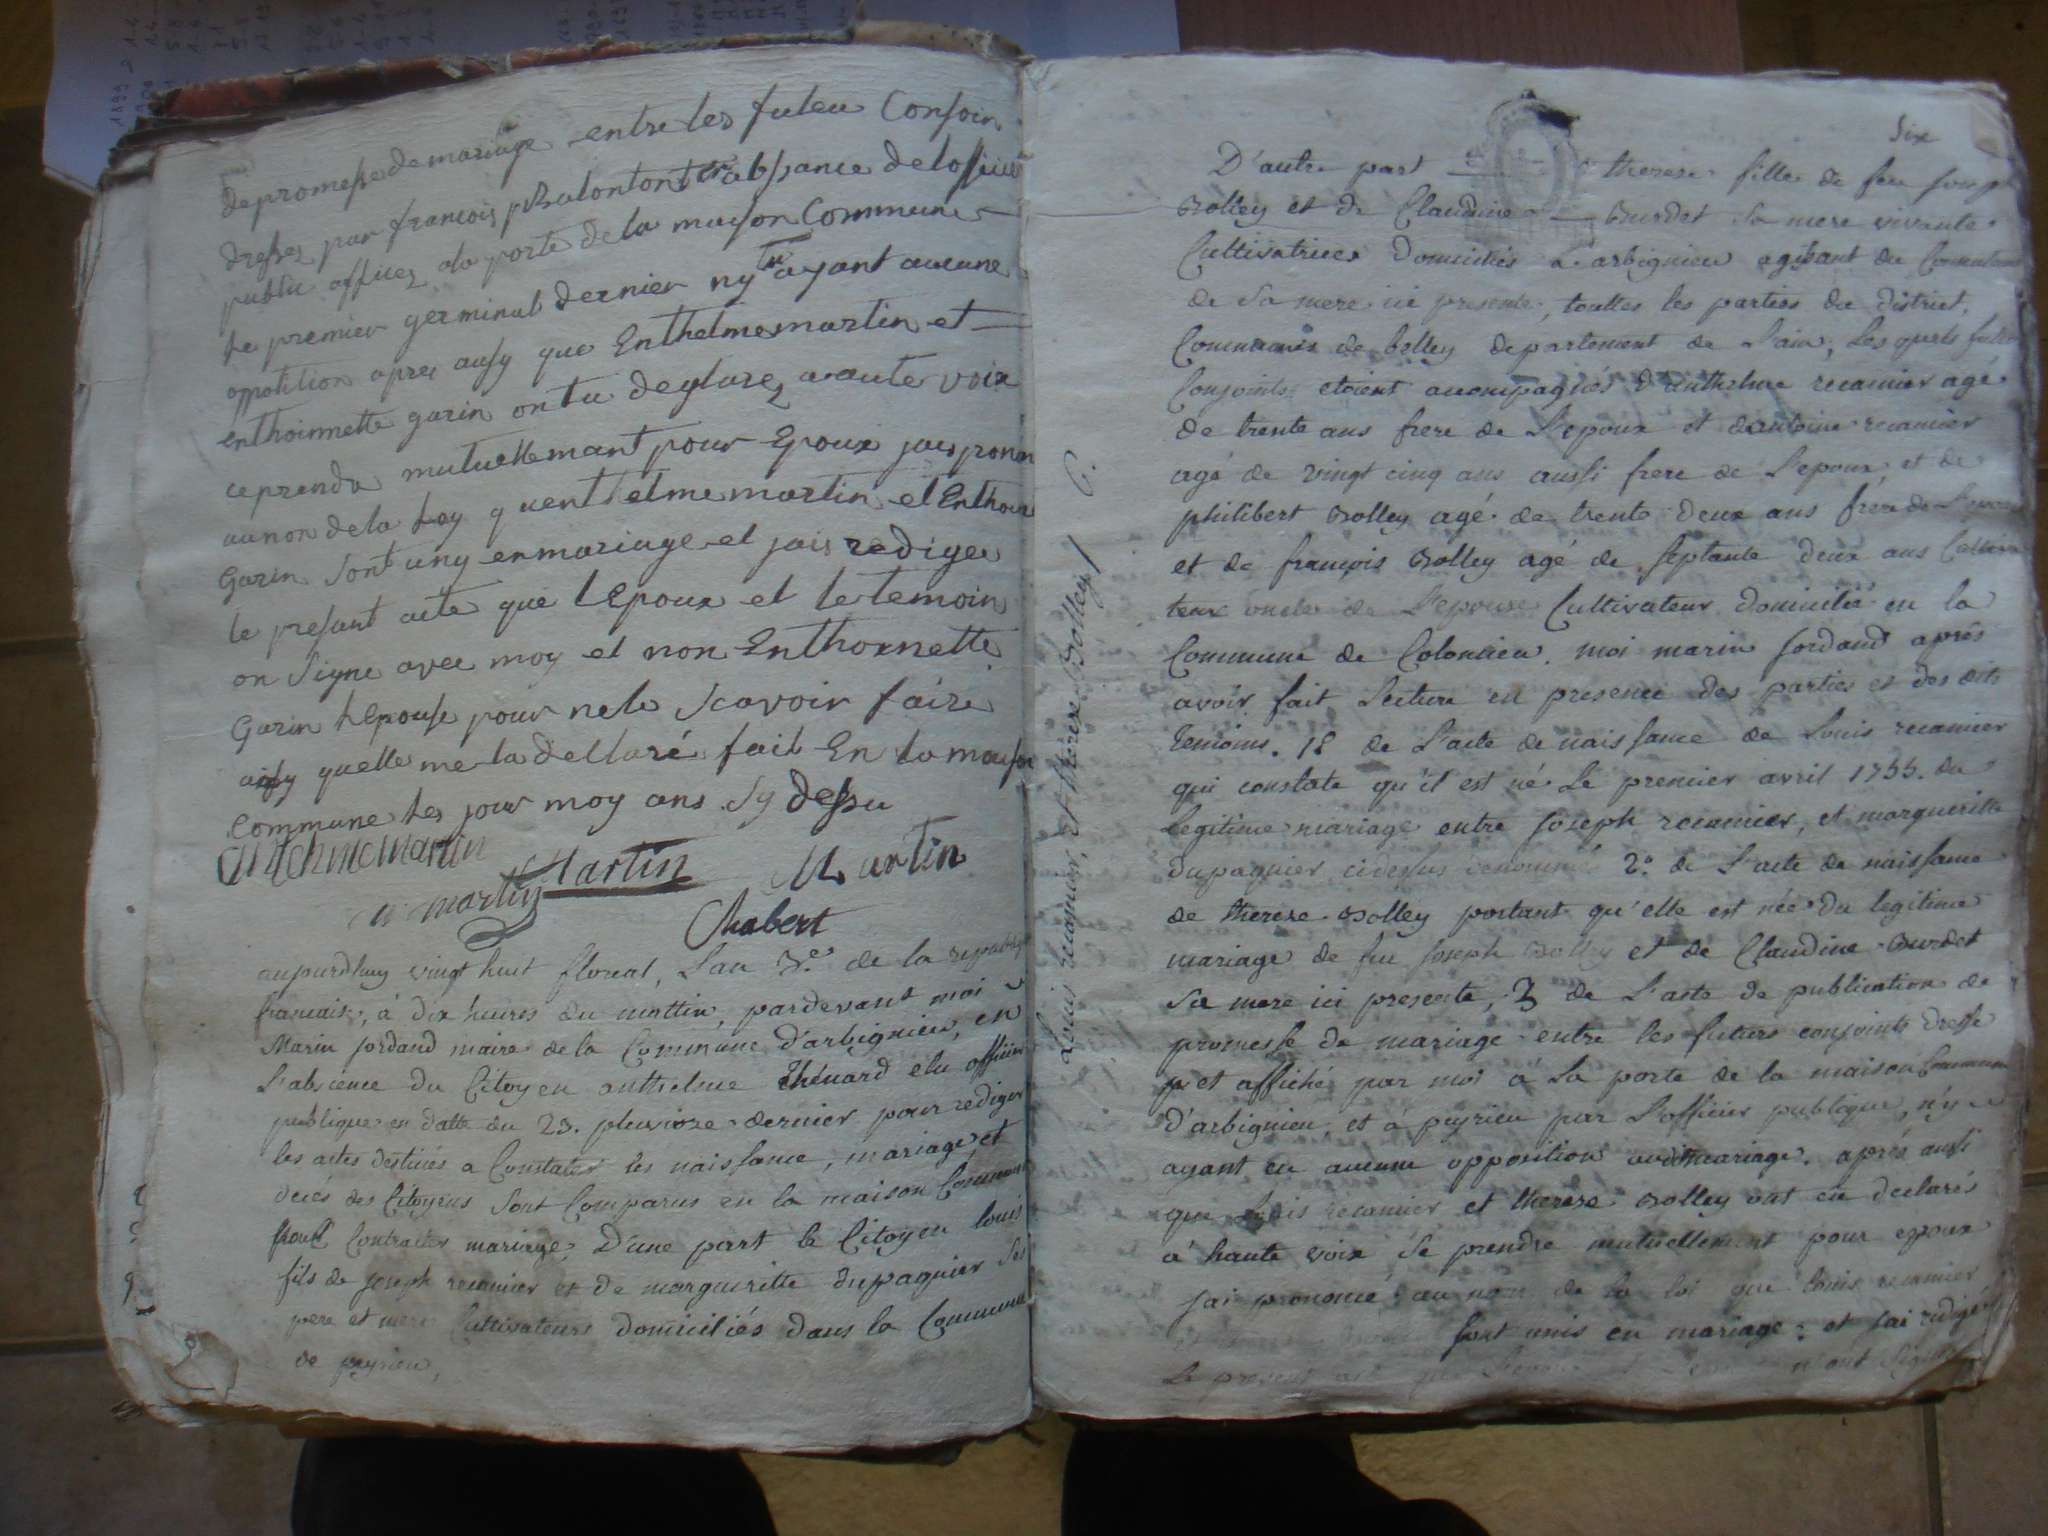 de promesse de mariage entre les futeu Consoin
dresses par francois p Balonton en absance de lofficie
public affiez ala porte de la maison Commune
le premier germinal dernier ny ayant aucune
oppotition apres ausy que Enthelme martin et
enthoinnette garin on tu deglarez a aute voix
ce prendre mutuellemant pour Epoux jais pronon
au non de la Loy quenthelme martin et Enthoin
Garin sont uny en mariage et jais rediger
le presant acte que lEpoux et le temoin
on signe avec moy et non Enthoinette
Garin lEpouse pour ne le scavoir faire
ainsy quelle me la dellaré fait En la maison
commune les jour moy ans sy dessu
Anthelme Martin
Martin
Martin
martin
Chabert
aujourdhuy vingt huit floreal, L'an 3.e de la republiq
francaise, à dix heures du mattin, pardevant moi
Marin Jordand maire de la Commune d'arbignieu, en
L'absence du Citoyen anthelme thénard elu officier
publique en datte du 23. pluviose dernier pour rediger
les actes destinés a Constater les naissance, mariage, et
decés des Citoyens sont Comparus en la maison Commune
pour Contracter mariage; D'une part le Citoyen louis
fils de joseph recamier et de margueritte dupaquier ses
pere et mere Cultivateurs domiciliés dans la Commune
de peyrieu,
Six
D'autre part therese fille de feu Joseph
Bolley et de Claudine Burdet sa mere vivante
Cultivatrice domiciliés a arbignieu agissant du Consentem
de sa mere ici presente, touttes les parties du district,
Communes de belley departement de l'ain, Les quels futur
Conjoints etoient acompagnés d'anthelme recamier agé
de trente ans frere de L'epoux et d'antoine recamier
agé de vingt cinq ans aussi frere de L'epoux et de
philibert Bolley agé de trente deux ans frere de L'epou
et de francois Bolley agé de septante deux ans Cultiva
teur oncle de L'epouse Cultivateur domicilié en la
Commune de Colomieu. moi marin Jordand aprés
avoir fait Lecture en presence des parties et des dits
temoins. 1º de L'acte de naissance de Louis recamier
qui constate qu'il est né Le premier avril 1755. du
Legitime mariage entre Joseph recamier, et margueritte
dupaquier cidessus denommé 2.º de L'acte de naissance
de therese Bolley portant qu'elle est née du legitime
mariage de feu Joseph Bolley et de Claudine Burdet
sa mere ici presente, 3 de L'acte de publication de
promesse de mariage entre les futurs conjoints dresse
et affiché par moi à La porte de la maison Commune
d'arbignieu, et à peyrieu par L'officier publique, n'y
ayant eu aucune opposition audit mariage. aprés aussi
que Louis recamier et therese Bolley ont eu declarés
à haute voix se prendre mutuellement pour epoux
jai prononcé au nom de la loi que louis recamier
sont unis en mariage: et jai redigé
Le present acte que n'ont signé
Louis recamier, et therese Bolley / 6.